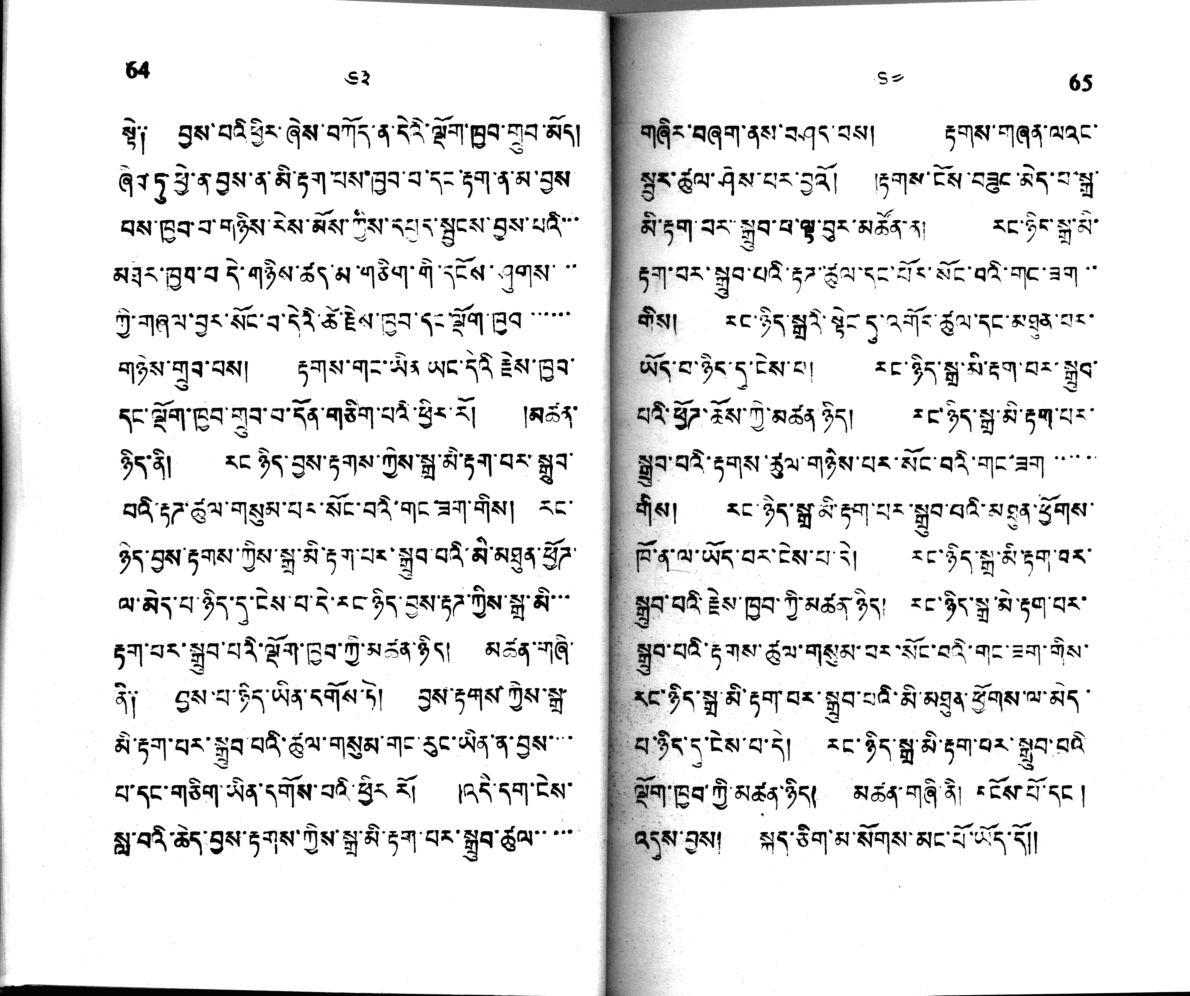 64
༦༣
སྟེ། བྱས་པའི་ཕྱིར་ཞེས་བཀོད་ན་དེའི་ལྡོག་ཁྱབ་གྲུབ་མོད།
ཞིབ་ཏུ་ཕྱེ་ན་བྱས་ན་མི་རྟག་པས་ཁྱབ་པ་དང་རྟག་ན་མ་བྱས
པས་ཁྱབ་པ་གཉིས་རེས་མོས་ཀྱིས་དཔྱད་སྦྱངས་བྱས་པའི་་་
མཐར་ཁྱབ་པ་དེ་གཉིས་ཚད་མ་གཅིག་གི་དངོས་ཤུགས་ ་་
ཀྱི་གཞལ་བྱར་སོང་བ་དེའི་ཚེ་རྗེས་ཁྱབ་དང་ལྡོག་ཁྱབ ་་་་་་
གཉིས་གྲུབ་པས། རྟགས་གང་ཡིན་ཡང་དེའི་རྗེས་ཁྱབ་
དང་ལྡོག་ཁྱབ་གྲུབ་པ་དོན་གཅིག་པའི་ཕྱིར་རོ། །མཚན་
ཉིད་ནི། རང་ཉིད་བྱས་རྟགས་ཀྱིས་སྒྲ་མི་རྟག་པར་སྒྲུབ་
པའི་རྟཊ་ཚུལ་གསུམ་པར་སོང་བའི་གང་ཟག་གིས། རང་
ཉིད་བྱས་རྟགས་ཀྱིས་སྒྲ་མི་རྟག་པར་སྒྲུབ་པའི་མི་མཐུན་ཕྱོཊ་
ལ་མེད་པ་ཉིད་དུ་ངེས་པ་དེ་རང་ཉིད་བྱས་རྟཊ་ཀྱིས་སྒྲ་མི་་་
རྟག་པར་སྒྲུབ་པའི་ལྡོག་ཁྱབ་ཀྱི་མཚན་ཉིད། མཚན་གཞི་
ནི། བྱས་པ་ཉིད་ཡིན་དགོས་ཏེ། བྱས་རྟགས་ཀྱིས་སྒྲ་
མི་རྟག་པར་སྒྲུབ་པའི་ཚུལ་གསུམ་གང་རུང་ཡིན་ན་བྱས་་་
པ་དང་གཅིག་ཡིན་དགོས་པའི་ཕྱིར་རོ། །འདི་དག་ངེས་
སླ་བའི་ཆེད་བྱས་རྟགས་ཀྱིས་སྒྲ་མི་རྟག་པར་སྒྲུབ་ཚུལ་་་ ་་་
65
གཞིར་བཞག་ནས་བཤད་པས། རྟགས་གཞན་ལའང་
སྦྱར་ཚུལ་ཤེས་པར་བྱའོ། །རྟགས་ངོས་བཟུང་མེད་པ་སྒྲ་
མི་རྟག་པར་སྒྲུབ་པ་ལྟ་བུར་མཚོན་ན། རང་ཉིད་སྒྲ་མི་
རྟག་པར་སྒྲུབ་པའི་རྟཊ་ཚུལ་དང་པོར་སོང་བའི་གང་ཟག ་་
གིས། རང་ཉིད་སྒྲའི་སྟེང་དུ་འགོད་ཚུལ་དང་མཐུན་པར་
ཡོད་པ་ཉིད་དུ་ངེས་པ། རང་ཉིད་སྒྲ་མི་རྟག་པར་སྒྲུབ་
པའི་ཕྱོཊ་ཆོས་ཀྱི་མཚན་ཉིད། རང་ཉིད་སྒྲ་མི་རྟག་པར་
སྒྲུབ་པའི་རྟགས་ཚུལ་གཉིས་པར་སོང་བའི་གང་ཟག ་་་་་
གིས། རང་ཉིད་སྒྲ་མི་རྟག་པར་སྒྲུབ་པའི་མཐུན་ཕྱོགས་
ཁོ་ན་ལ་ཡོད་པར་ངེས་པ་དེ། རང་ཉིད་སྒྲ་མི་རྟག་པར་
སྒྲུབ་པའི་རྗེས་ཁྱབ་ཀྱི་མཚན་ཉིད། རང་ཉིད་སྒྲ་མི་རྟག་པར་
སྒྲུབ་པའི་རྟགས་ཚུལ་གསུམ་པར་སོང་བའི་གང་ཟག་གིས་
རང་ཉིད་སྒྲ་མི་རྟག་པར་སྒྲུབ་པའི་མི་མཐུན་ཕྱོགས་ལ་མེད་
པ་ཉིད་དུ་ངེས་པ་དེ། རང་ཉིད་སྒྲ་མི་རྟག་པར་སྒྲུབ་པའི
ལྡོག་ཁྱབ་ཀྱི་མཚན་ཉིད། མཚན་གཞི་ནི། དངོས་པོ་དང་།
འདུས་བྱས། སྐད་ཅིག་མ་སོགས་མང་པོ་ཡོད་དོ།།